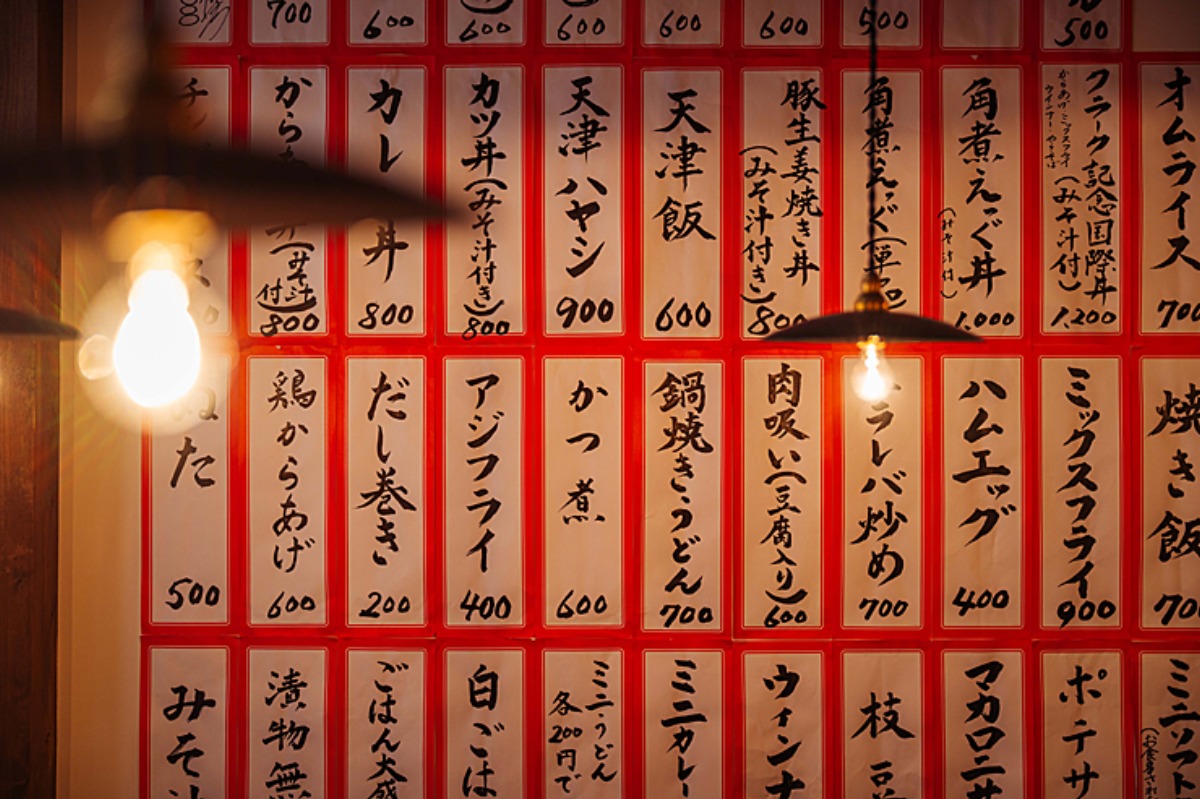 700
600
600
600
600
600
500
500
オムライス
700
クラーク記念国際丼
(みそ汁付)
からあげ・ミックスフライ
ウインナー・やきそば
1,200
角煮えっぐ丼
(みそ汁付)
1,000
角煮えっぐ(単品)
豚生姜焼き丼
(みそ汁付き)
800
天津飯
600
天津ハヤシ
900
カツ丼(みそ汁付き)
800
カレー丼
800
(みそ汁付)
800
焼き飯
700
ミックスフライ
900
ハムエッグ
400
ニラレバ炒め
700
肉吸い(豆腐入り)
600
鍋焼きうどん
700
かつ煮
600
アジフライ
400
だし巻き
200
鶏からあげ
600
ぬた
500
ミニソフト
ポテサ
マカロニサ
枝豆
ウィンナ
ミニカレー
ミニうどん
各200円で
白ごは
ごはん大盛
漬物無
みそ汁